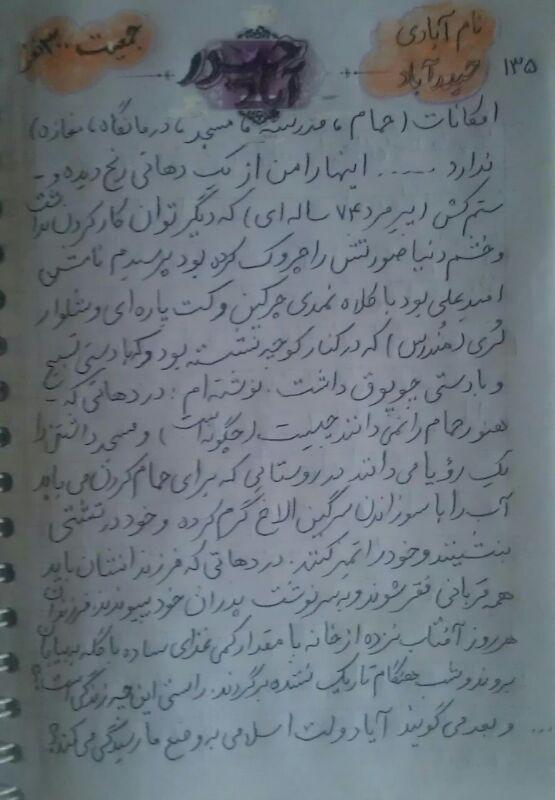 نام آبادی
حیدرآباد
حیدر
آباد
جمعیت ۱۳۰۰ نفر
۱۳۵
امکانات (حمام ، مدرسه ، مسجد ، درمانگاه ، مغازه)
ندارد ..... اینها را من از یک دهاتی رنج دیده و -
ستم کش (پیرمرد ۷۴ ساله ای) که دیگر توان کار کردن نداشت
و خشم دنیا صورتش را چروک کرده بود پرسیدم نامش
امیدعلی بود با کلاه نمدی چرکین و کت پاره ای و شلوار
لری (مُندرس) که در کنار کوچه نشسته بود و با دستی تسبیح
و با دستی چوپوق داشت. نوشته ام : در دهاتی که -
هنوز حمام را نمی دانند چیست (چگونه است) و مسجد داشتن را
یک رؤیا می دانند در روستایی که برای حمام کردن می باید
آب را با سوزاندن سرگین الاغ گرم کرده و خود در تشتی
بنشینند و خود را تمیز کنند. در دهاتی که فرزندانشان باید
همه قربانی فقر شوند و به سرنوشت پدران خود بپیوندند. فرزندان
هر روز آفتاب نزده از خانه با مقدار کمی غذای ساده با گله به بیابان
بروند و شب هنگام تاریک نشده برگردند. راستی این چه زندگی است؟
... و بعد می گویند آیا دولت اسلامی به وضع ما رسیدگی می کند؟